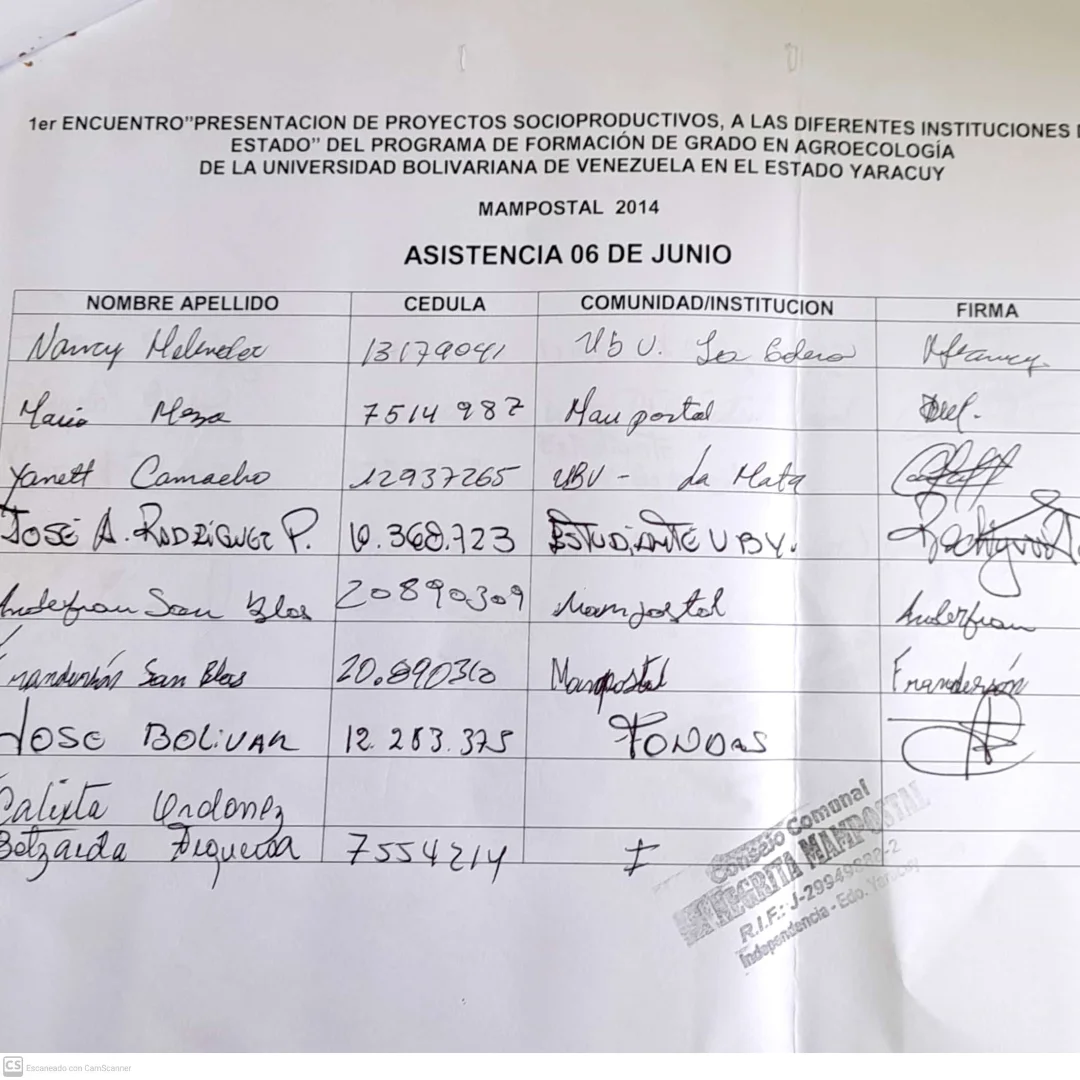 1er ENCUENTRO"PRESENTACION DE PROYECTOS SOCIOPRODUCTIVOS, A LAS DIFERENTES INSTITUCIONES
ESTADO" DEL PROGRAMA DE FORMACIÓN DE GRADO EN AGROECOLOGÍA
DE LA UNIVERSIDAD BOLIVARIANA DE VENEZUELA EN EL ESTADO YARACUY
MAMPOSTAL 2014
ASISTENCIA 06 DE JUNIO
NOMBRE APELLIDO CEDULA COMUNIDAD/INSTITUCION FIRMA
Nancy Melendez 13179041 UbV.
Mario Meza 7514987 Mampostal
Yanett Camacho 12937265 UBV - La Mata
JOSÉ A. RODRÍGUEZ P. ESTUDIANTE UBV.
Anderfran San Blas 20890309 Mampostal Anderfran
San Blas 20.890310 Mampostal Franderson
JOSE BOLIVAR 12.283.375 FONDAS
Calixta Ordonez
Betzaida Figueroa 7554214
Consejo Comunal
NEGRITA MAMPOSTAL
R.I.F.:
Independencia - Edo. Yaracuy
CS Escaneado con CamScanner